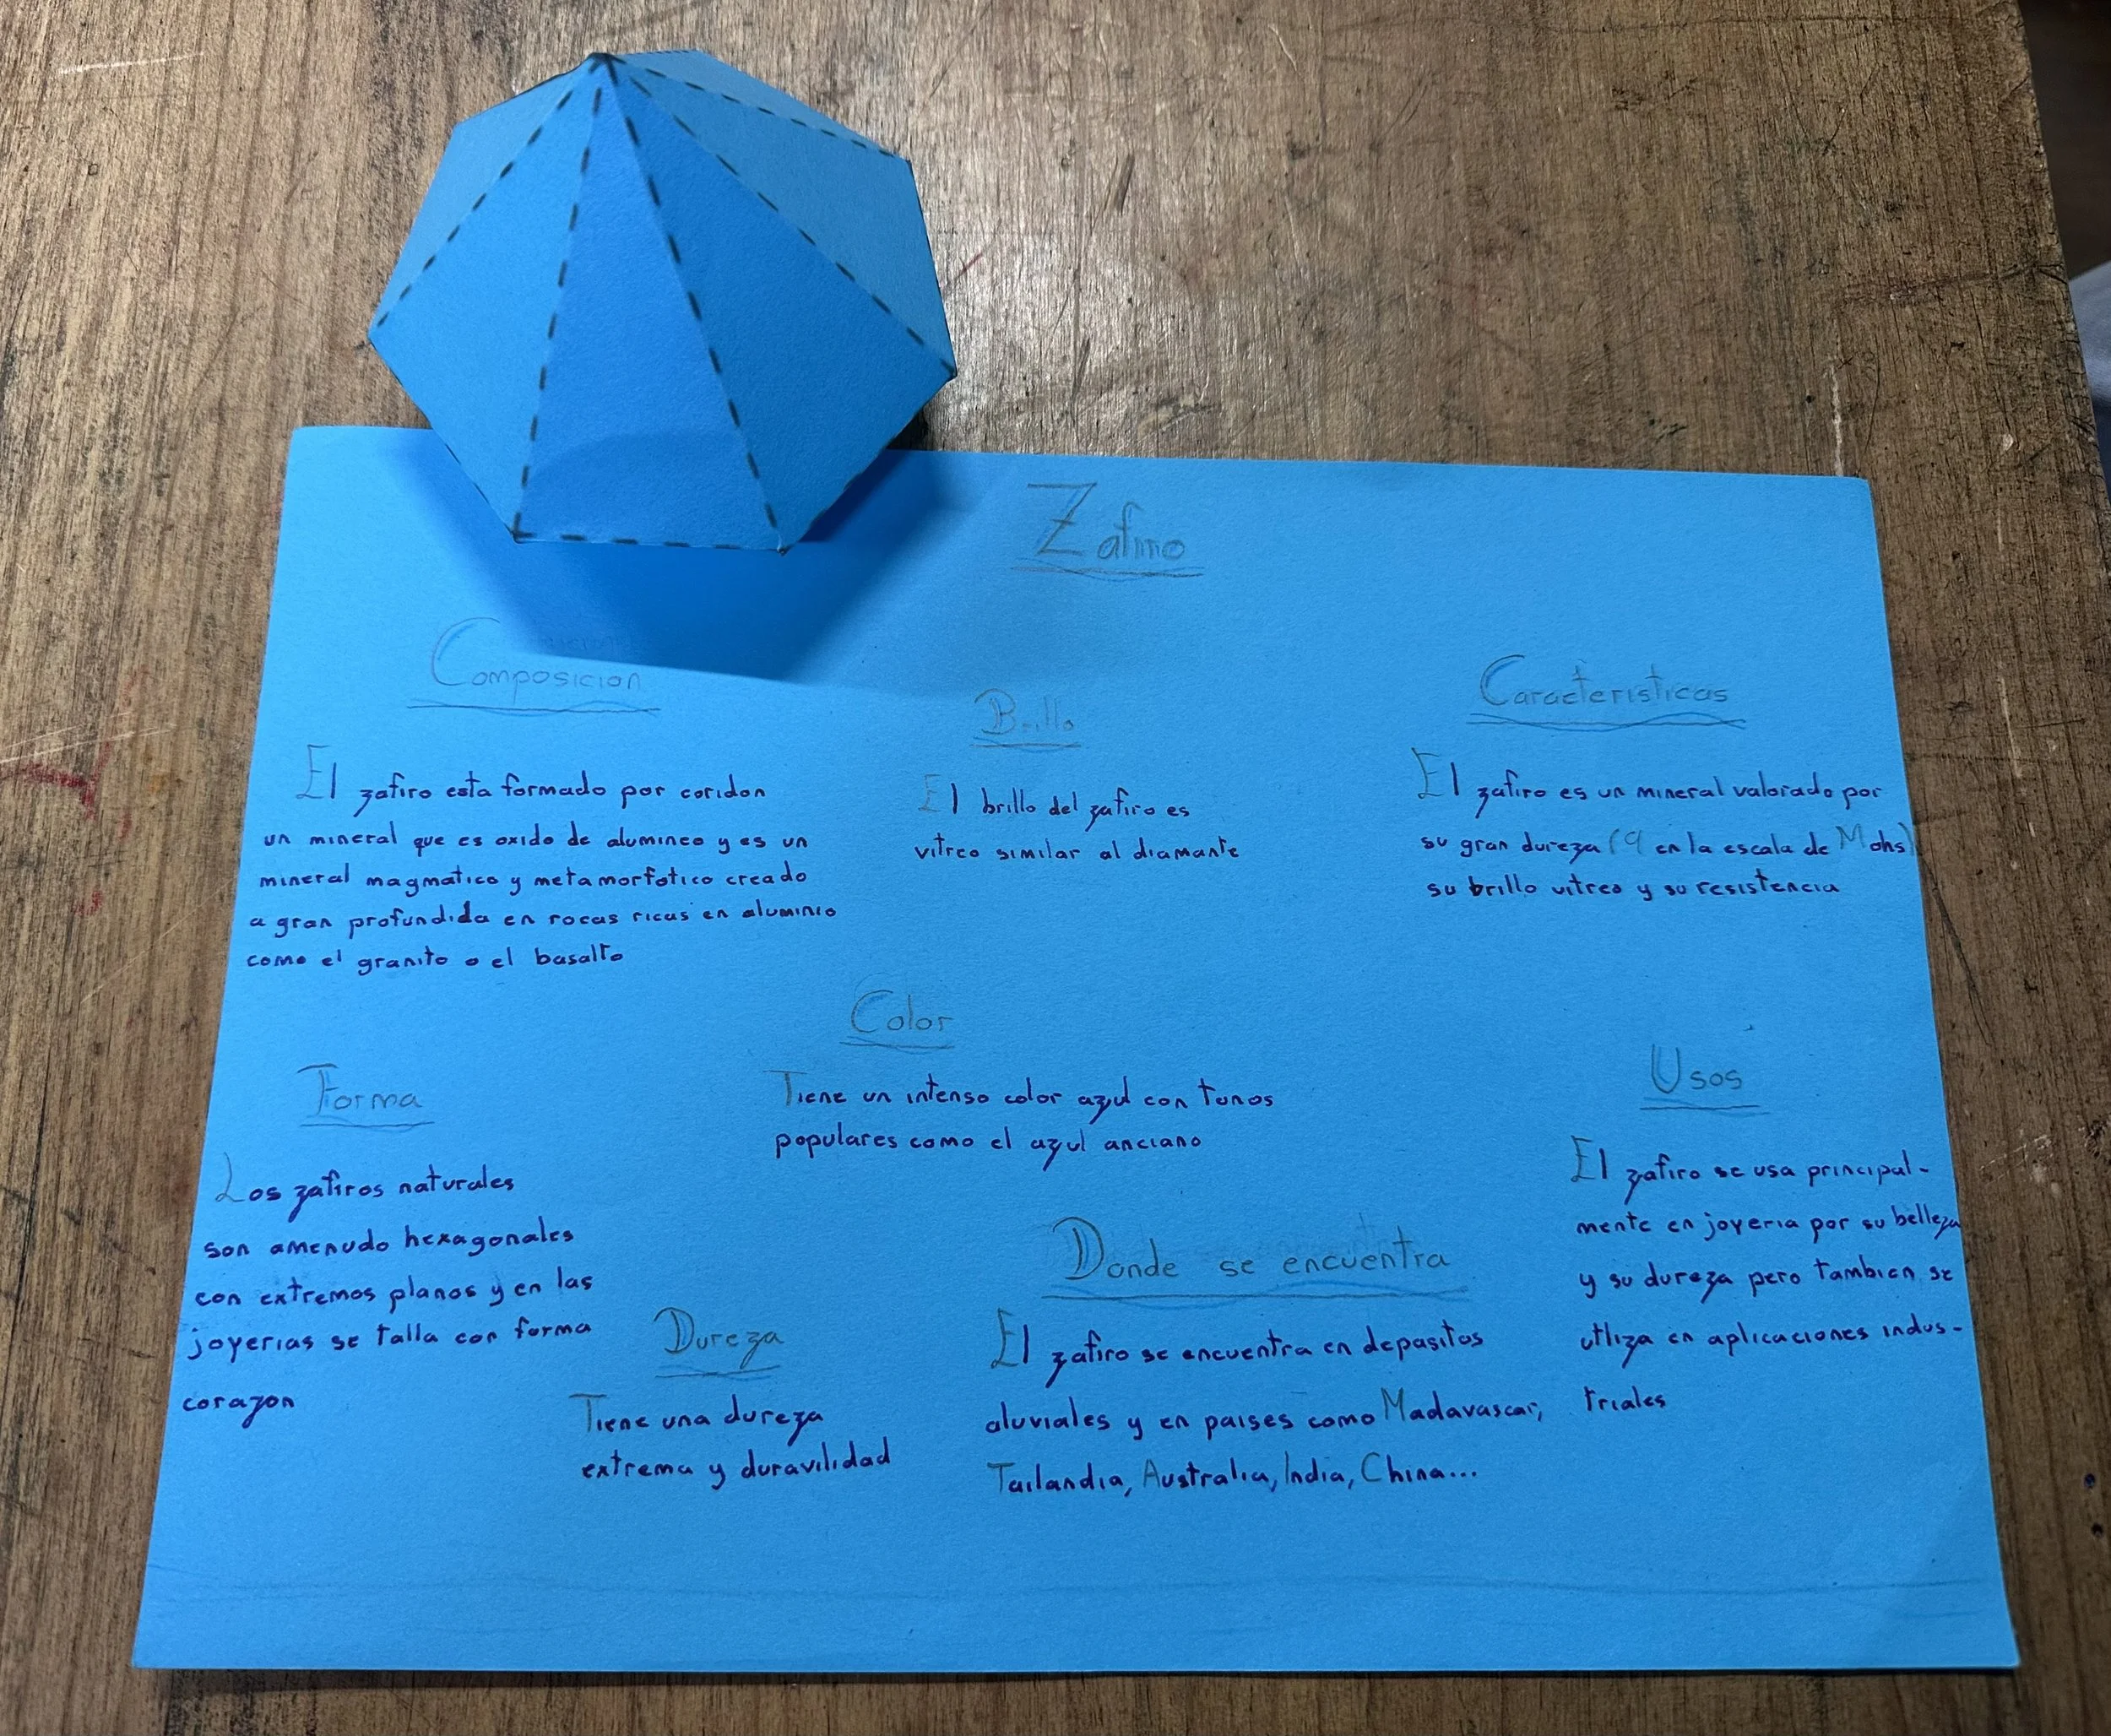 Zafiro
Composicion
El zafiro esta formado por coridon
un mineral que es oxido de alumineo y es un
mineral magmatico y metamorfotico creado
a gran profundida en rocas ricas en aluminio
como el granito o el basalto
Brillo
El brillo del zafiro es
vitreo similar al diamante
Caracteristicas
El zafiro es un mineral valorado por
su gran dureza (9 en la escala de Mohs)
su brillo vitreo y su resistencia
Color
Tiene un intenso color azul con tonos
populares como el azul anciano
Forma
Los zafiros naturales
son amenudo hexagonales
con extremos planos y en las
joyerias se talla con forma
corazon
Dureza
Tiene una dureza
extrema y duravilidad
Donde se encuentra
El zafiro se encuentra en depasitos
aluviales y en paises como Madavascar,
Tailandia, Australia, India, China...
Usos
El zafiro se usa principal-
mente en joyeria por su belleza
y su dureza pero tambien se
utliza en aplicaciones indus-
triales